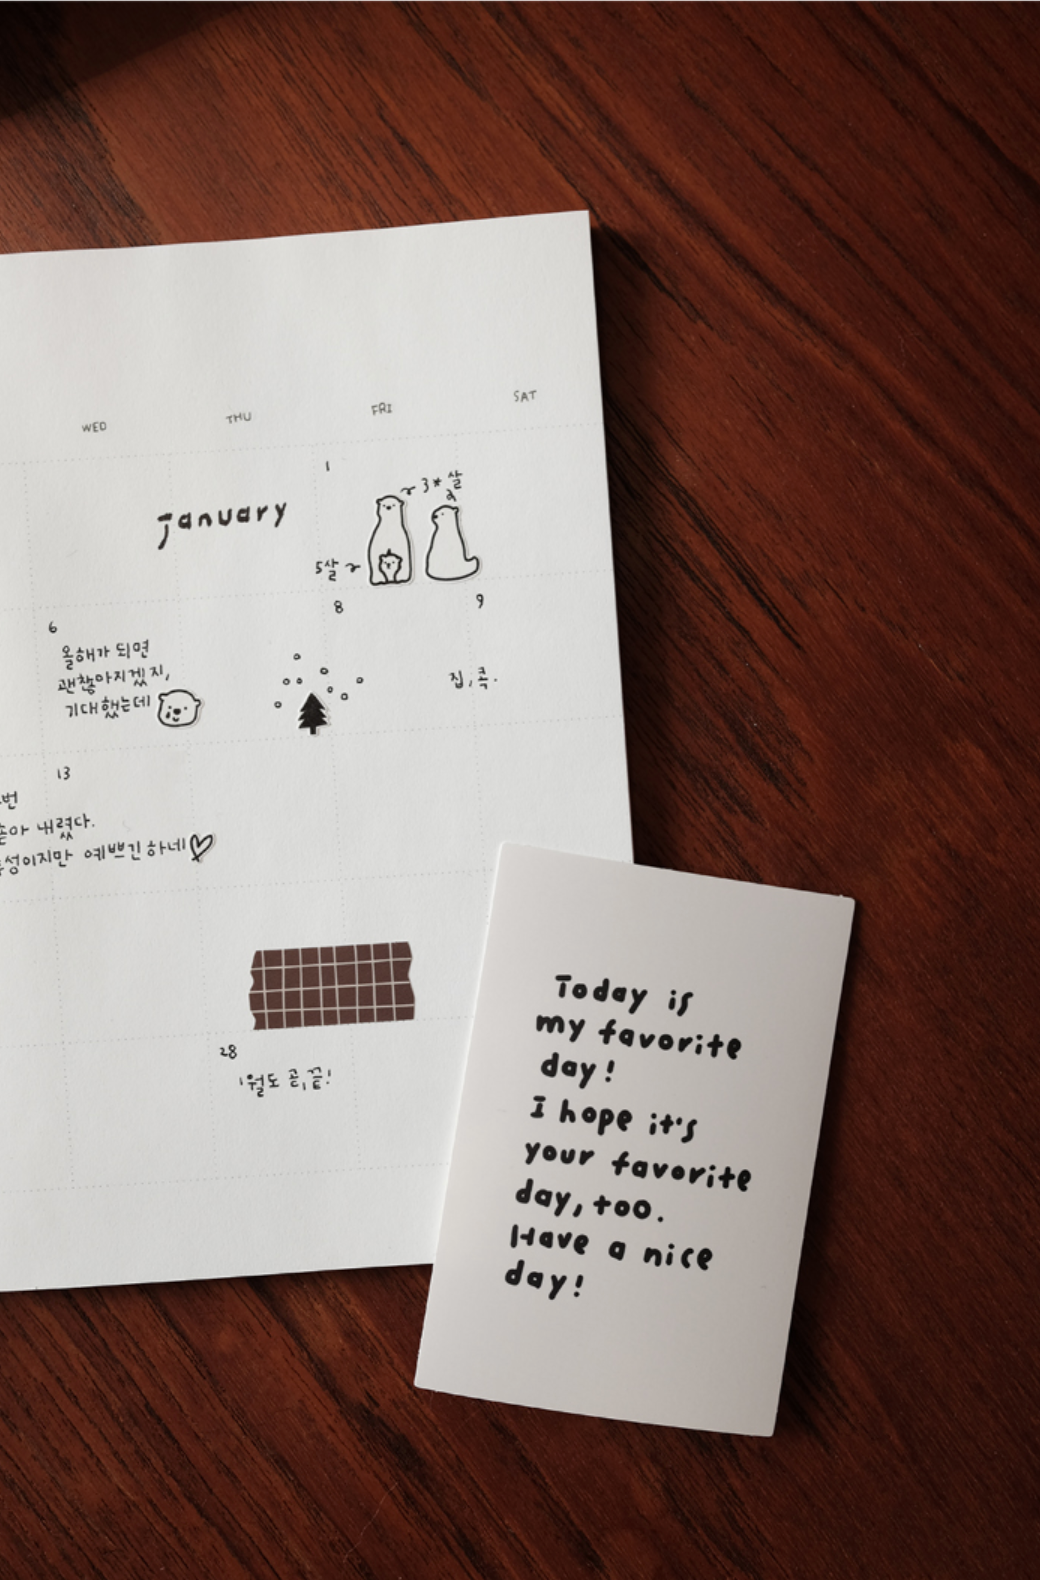 WED THU FRI SAT
January
1
3*살
5살
6
올해가 되면
괜찮아지겠지,
기대했는데
8
9
집,콕.
13
번
아 내렸다.
성이지만 예쁘긴하네
28
1월도 곧,끝!
Today is
my favorite
day!
I hope it's
your favorite
day, too.
Have a nice
day!